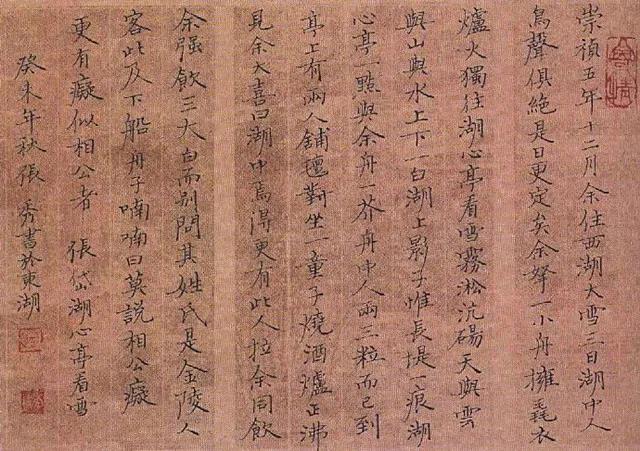 崇禎五年十二月余住西湖大雪三日湖中人
鳥聲俱絕是日更定矣余拏一小舟擁毳衣
爐火獨往湖心亭看雪霧淞沆碭天與雲
與山與水上下一白湖上影子惟長堤一痕湖
心亭一點與余舟一芥舟中人兩三粒而已到
亭上有兩人鋪氈對坐一童子燒酒爐正沸
見余大喜曰湖中焉得更有此人拉余同飲
余强飲三大白而別問其姓氏是金陵人
客此及下船舟子喃喃曰莫說相公癡
更有癡似相公者 張岱湖心亭看雪
癸未年秋張秀書於東湖